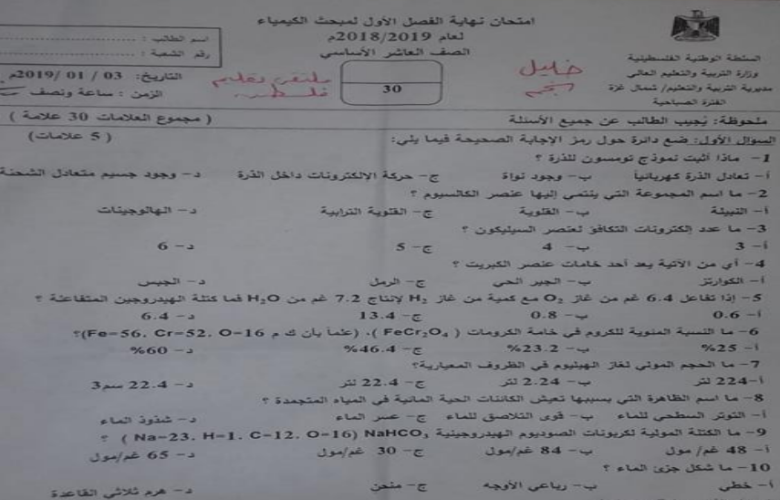 امتحان نهاية الفصل الأول لمبحث الكيمياء
لعام 2018/2019م
الصف العاشر الأساسي
30
السلطة الوطنية الفلسطينية
وزارة التربية والتعليم العالي
مديرية التربية والتعليم/ شمال غزة
الفترة الصباحية
اسم الطالب :
رقم الشعبة :
التاريخ: 03 / 01 /2019م
الزمن : ساعة ونصف
خليل
نجم
ملتقى تعليم
فلسطين
ملحوظة: يُجيب الطالب عن جميع الأسئلة ( مجموع العلامات 30 علامة )
السؤال الأول: ضع دائرة حول رمز الإجابة الصحيحة فيما يلي: ( 5 علامات)
1- ماذا أثبت نموذج تومسون للذرة ؟
أ- تعادل الذرة كهربائياً ب- وجود نواة ج- حركة الإلكترونات داخل الذرة د- وجود جسيم متعادل الشحنة
2- ما اسم المجموعة التي ينتمي إليها عنصر الكالسيوم ؟
أ- النبيلة ب- القلوية ج- القلوية الترابية د- الهالوجينات
3- ما عدد إلكترونات التكافؤ لعنصر السيليكون ؟
أ- 3 ب- 4 ج- 5 د- 6
4- أي من الآتية يعد أحد خامات عنصر الكبريت ؟
أ- الكوارتز ب- الجير الحي ج- الرمل د- الجبس
5- إذا تفاعل 6.4 غم من غاز O₂ مع كمية من غاز H₂ لإنتاج 7.2 غم من H₂O فما كتلة الهيدروجين المتفاعلة ؟
أ- 0.6 ب- 0.8 ج- 13.4 د- 6.4
6- ما النسبة المئوية للكروم في خامة الكرومات ( FeCr₂O₄ )، (علماً بأن ك م Fe=56, Cr=52, O=16)؟
أ- 25% ب- 23.2% ج- 46.4% د- 60%
7- ما الحجم المولي لغاز الهيليوم في الظروف المعيارية؟
أ- 224 لتر ب- 2.24 لتر ج- 22.4 لتر د- 22.4 سم3
8- ما اسم الظاهرة التي بسببها تعيش الكائنات الحية المائية في المياه المتجمدة ؟
أ- التوتر السطحي للماء ب- قوى التلاصق للماء ج- عسر الماء د- شذوذ الماء
9- ما الكتلة المولية لكربونات الصوديوم الهيدروجينية NaHCO₃ (Na=23, H=1, C=12, O=16 ) ؟
أ- 48 غم/ مول ب- 84 غم/مول ج- 30 غم/مول د- 65 غم/مول
10- ما شكل جزئ الماء ؟
أ- خطي ب- رباعي الأوجه ج- منحن د- هرم ثلاثي القاعدة